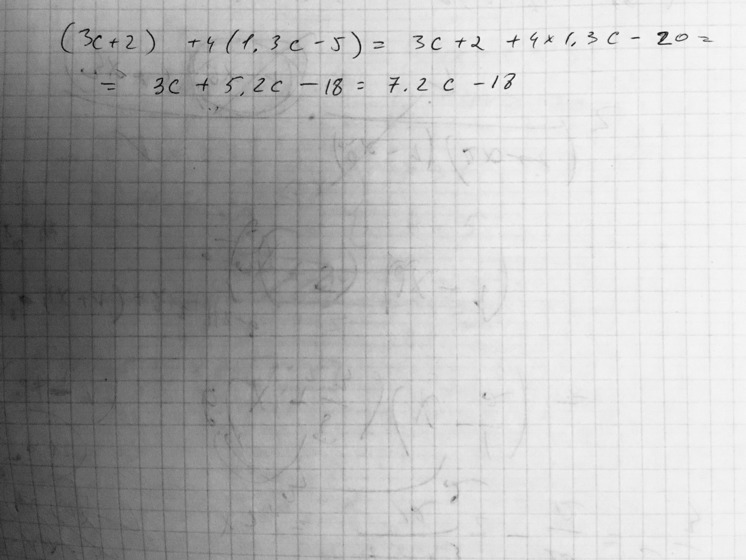 (3c+2) +4(1,3c-5) = 3c+2 +4×1,3c - 20 =
= 3c + 5,2c - 18 = 7.2c - 18